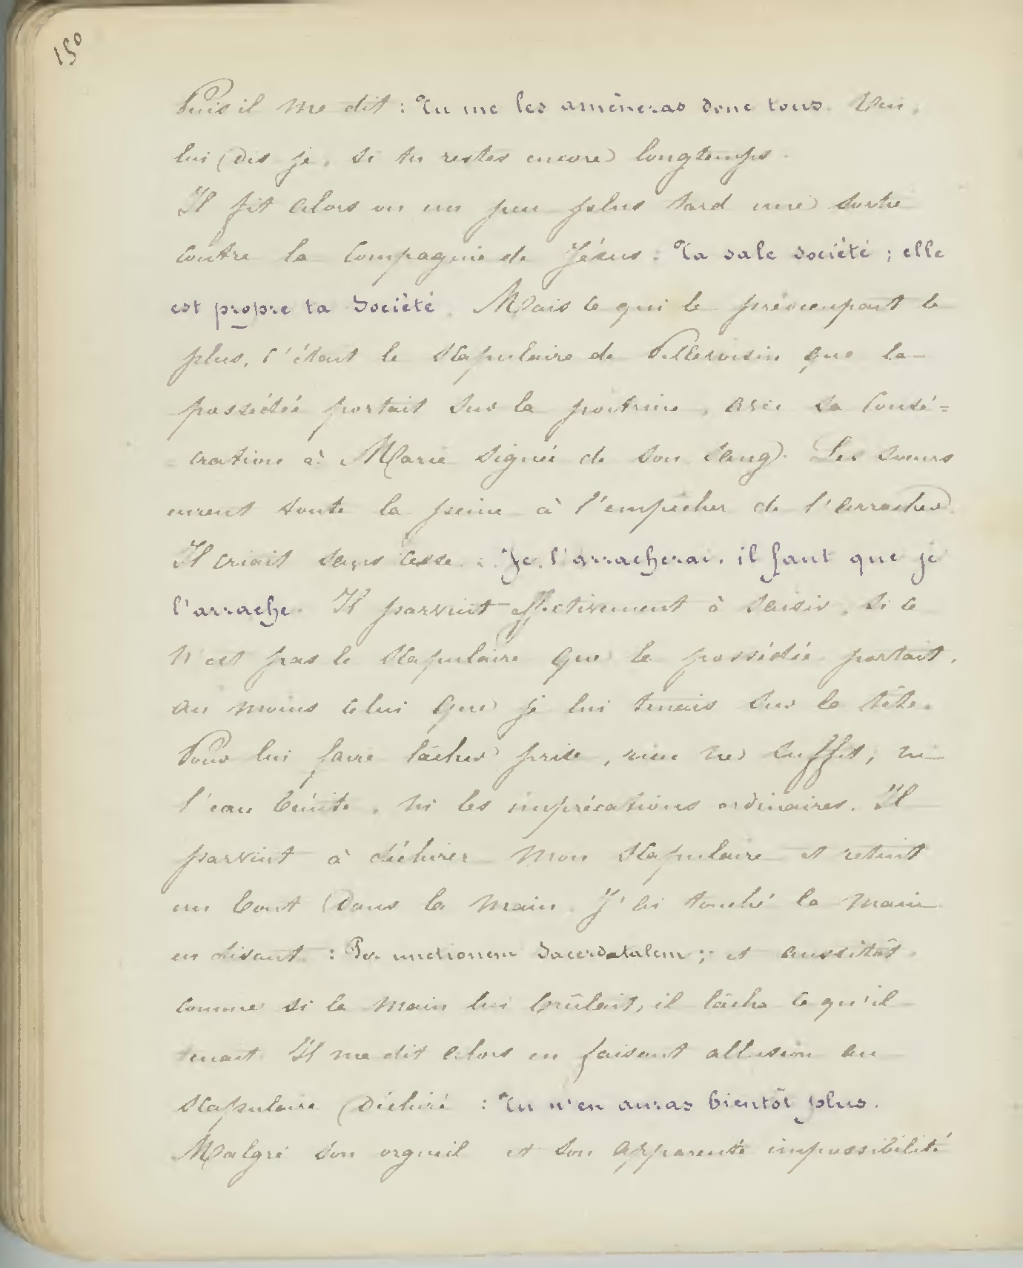 150
Puis il me dit : Tu me les amèneras donc tous. Oui,
lui dis je, si tu restes encore longtemps.
Il fit alors ou un peu plus tard une sortie
contre la Compagnie de Jésus : Ta sale société ; elle
est propre ta Société. Mais ce qui le préoccupait le
plus, c'était le Scapulaire de Pellevoisin que la
possédée portait sur la poitrine, avec sa Consé=
cration à Marie signée de son sang. Les sœurs
eurent toute la peine à l'empêcher de l'arracher.
Il criait sans cesse : Je l'arracherai, il faut que je
l'arrache. Il parvint effectivement à saisir, si ce
n'est pas le Scapulaire que la possédée portait,
au moins celui que je lui tenais sur la tête.
Pour lui faire lâcher prise, rien ne suffit, ni
l'eau bénite, ni les imprécations ordinaires. Il
parvint à déchirer mon Scapulaire et retint
un bout dans la main. J'ai touché la main
en disant : Per unctionem Sacerdotalem ; et aussitôt,
comme si la main lui brûlait, il lâcha ce qu'il
tenait. Il me dit alors en faisant allusion au
Scapulaire déchiré : Tu n'en auras bientôt plus.
Malgré son orgueil et son apparente impossibilité